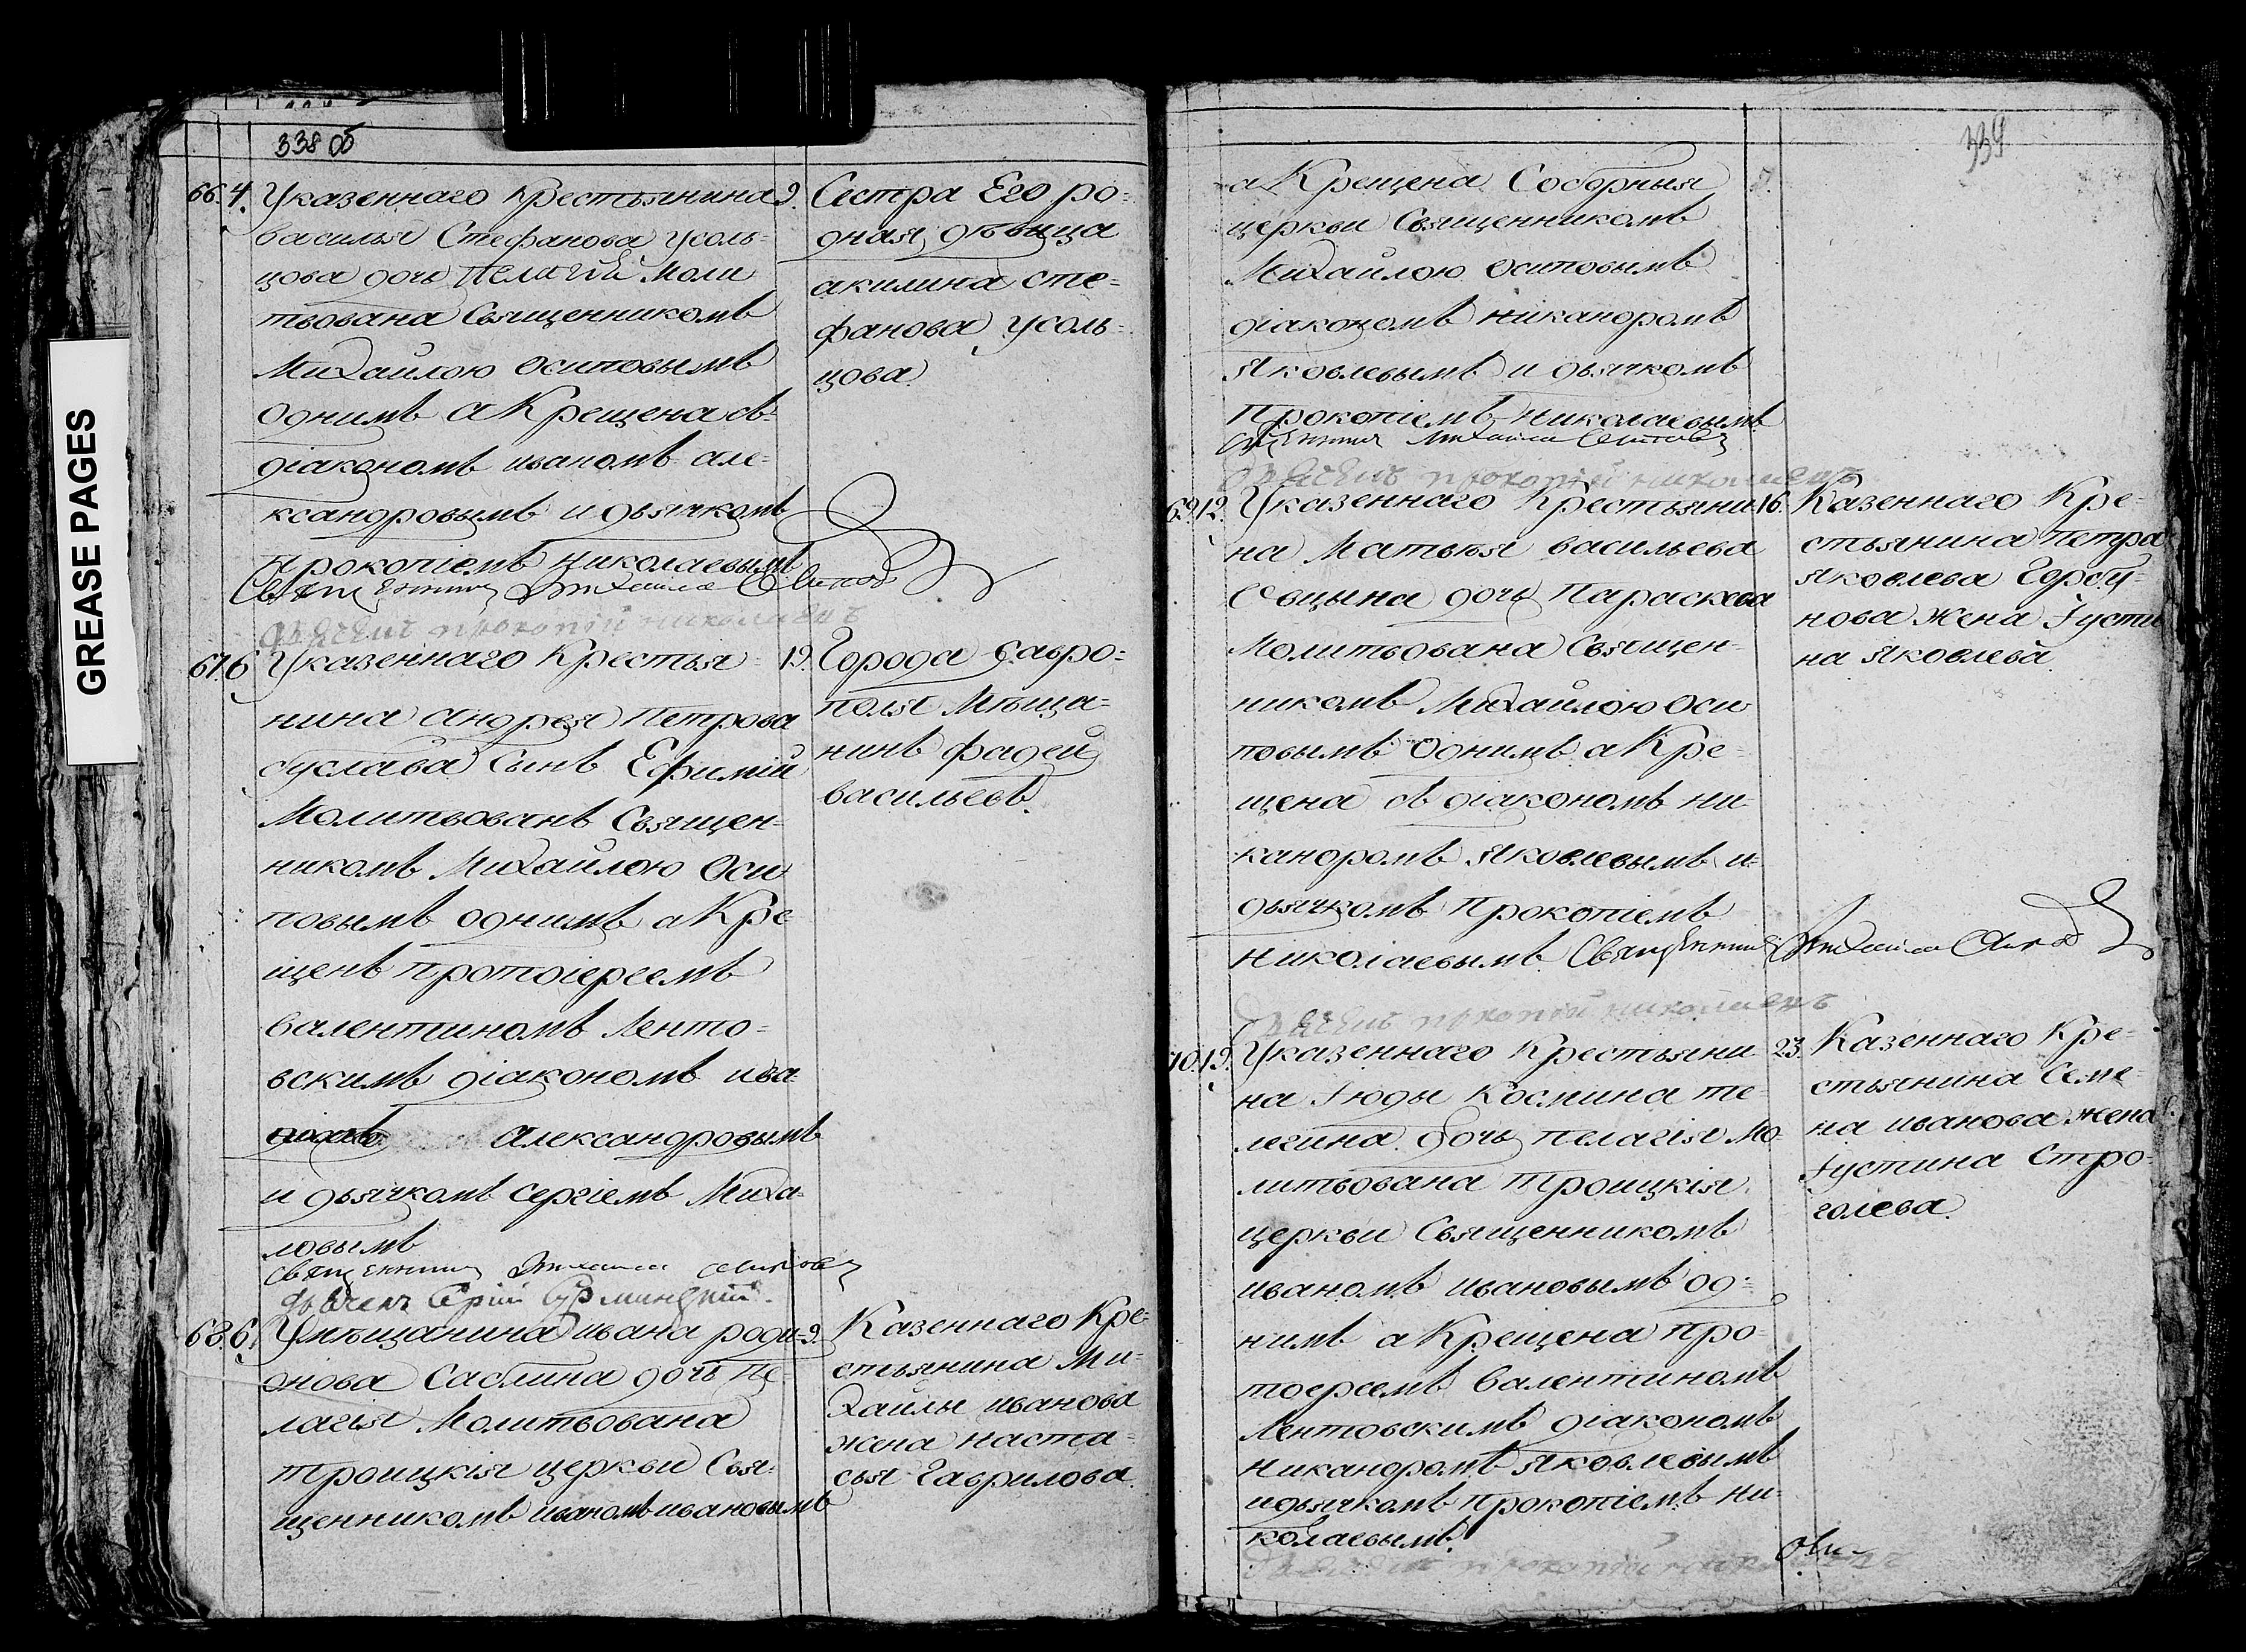 GREASE PAGES
338 об
66. 4. Указеннаго Крестьянина 9.
василья Стефанова усоль=
цова дочь пелагiи моли
твована Священникомъ
Михаилою осиповымъ
однимъ а Крещена съ
дiакономъ иваномъ але=
ксандровымъ и дьячкомъ
прокопiемъ николаевымъ
Священникъ Михаилъ Осиповъ
дьячекъ прокопiй николаевъ
Сестра Его ро=
дная дѣвица
акилина сте=
фанова усоль=
цова
67. 6. Указеннаго Крестья= 19.
нина андрея петрова
суслава сынъ Ефимiй
Молитвованъ Священ=
никомъ Михаилою Оси
повымъ однимъ а Кре
щенъ протоiереемъ
валентиномъ Ленто=
вскимъ дiакономъ ива
Александровымъ
и дьячкомъ сергiемъ Миха=
ловымъ
Священникъ Михаилъ осиповъ
дьячекъ
Города Савро=
поля Мѣща=
нинъ фадей
васильевъ.
68. 6. Умѣщанина ивана роди= 9.
онова Саблина дочь пе=
лагiя Молитвована
троицкiя церкви Свя=
щенникомъ иваномъ ивановымъ
Казеннаго Кре=
стьянина ми=
хаилы иванова
жена наста=
сья Гаврилова.
339
а Крещена Соборныя
церкви Священникомъ
Михаилою осиповымъ
дiакономъ никандромъ
яковлевымъ и дьячкомъ
прокопiемъ николаевымъ
Священникъ Михаилъ Осиповъ
дьячекъ прокопiй николаевъ
69. 12. Указеннаго Крестьяни= 16.
на Матвѣя васильева
Овцына дочь Параскева
Молитвована Священ=
никомъ Михаилою Оси
повымъ однимъ а Кре=
щена съ дiакономъ ни=
кандромъ яковлевымъ и
дьячкомъ прокопiемъ
николаевымъ Священникъ Михаилъ Осиповъ
дьячекъ прокопiй николаевъ
Казеннаго Кре=
стьянина петра
яковлева Горбу=
нова жена Iусти
на яковлева.
70. 19. Указеннаго Крестьяни= 23.
на Iюды космина те=
легина дочь пелагiя мо=
литвована троицкiя
церкви Священникомъ
иваномъ ивановымъ од=
нимъ а Крещена про=
тоереемъ валентиномъ
Лентовскимъ дiакономъ
никандромъ яковлевымъ
и дьячкомъ прокопiемъ ни=
колаевымъ.
дьячекъ прокопiй николаевъ
Казеннаго Кре=
стьянина Семе=
на иванова жена
Iустина Стро=
голева.